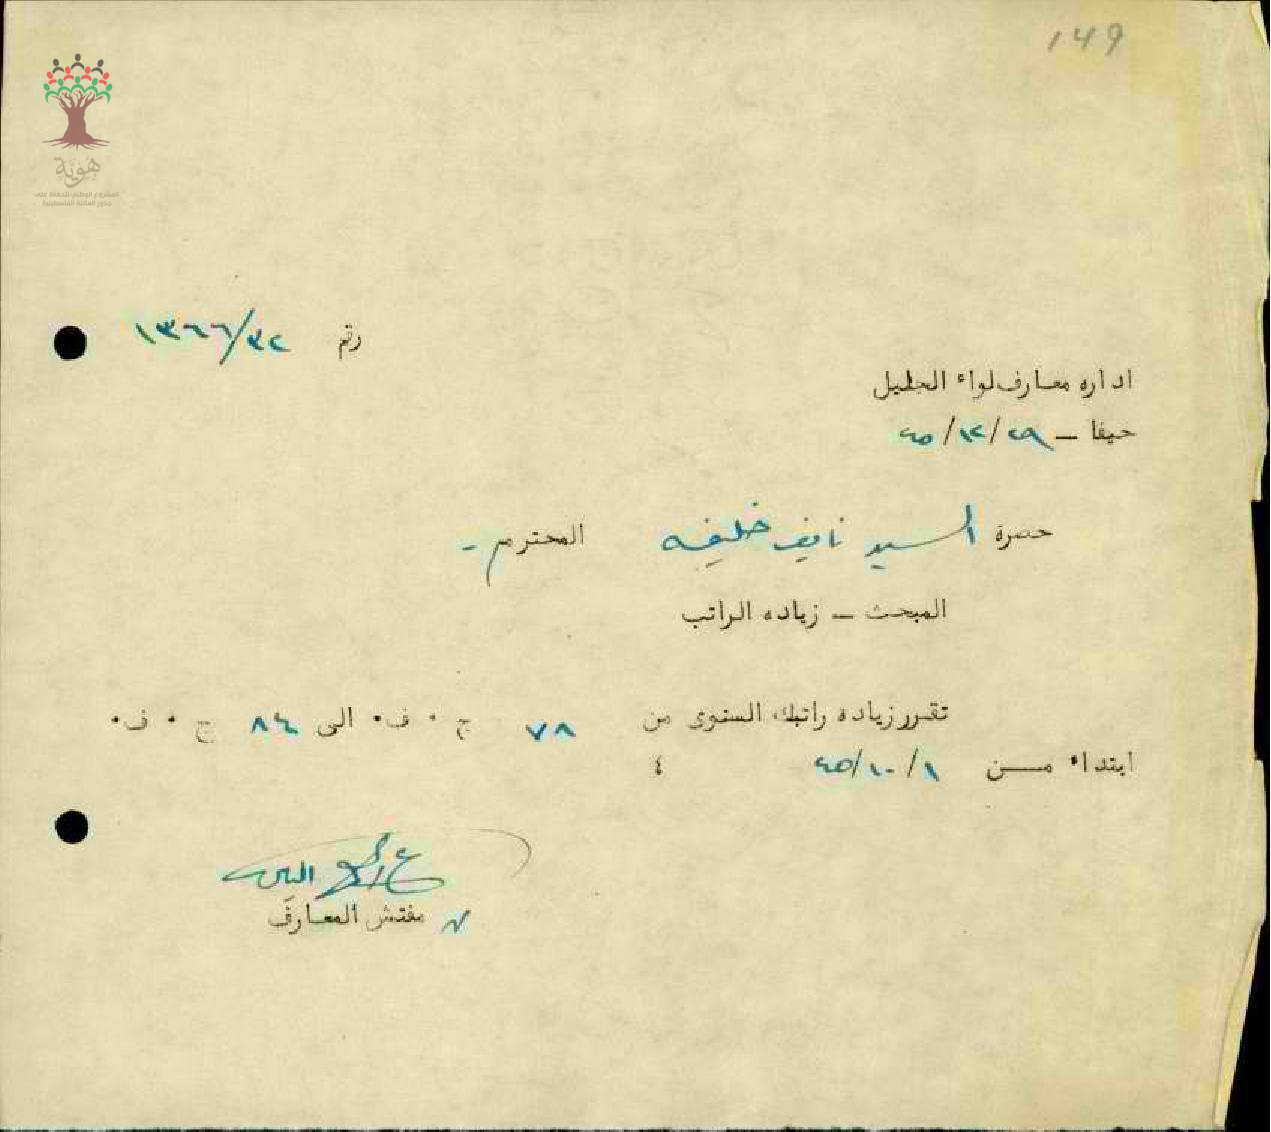 149
هوية
المشروع الوطني للحفاظ على
جذور العائلة الفلسطينية
رقم ١٣٦٦/٣٢
اداره معارف لواء الجليل
حيفا – ٢٩/١٢/٤٥
حضرة السيد نايف خليفه المحترم –
المبحث – زياده الراتب
تقرر زياده راتبك السنوى من ٧٨ ج ٠ ف ٠ الى ٨٤ ج ٠ ف ٠
ابتداء من ١/١٠/٤٥ ٤
مفتش المعارف